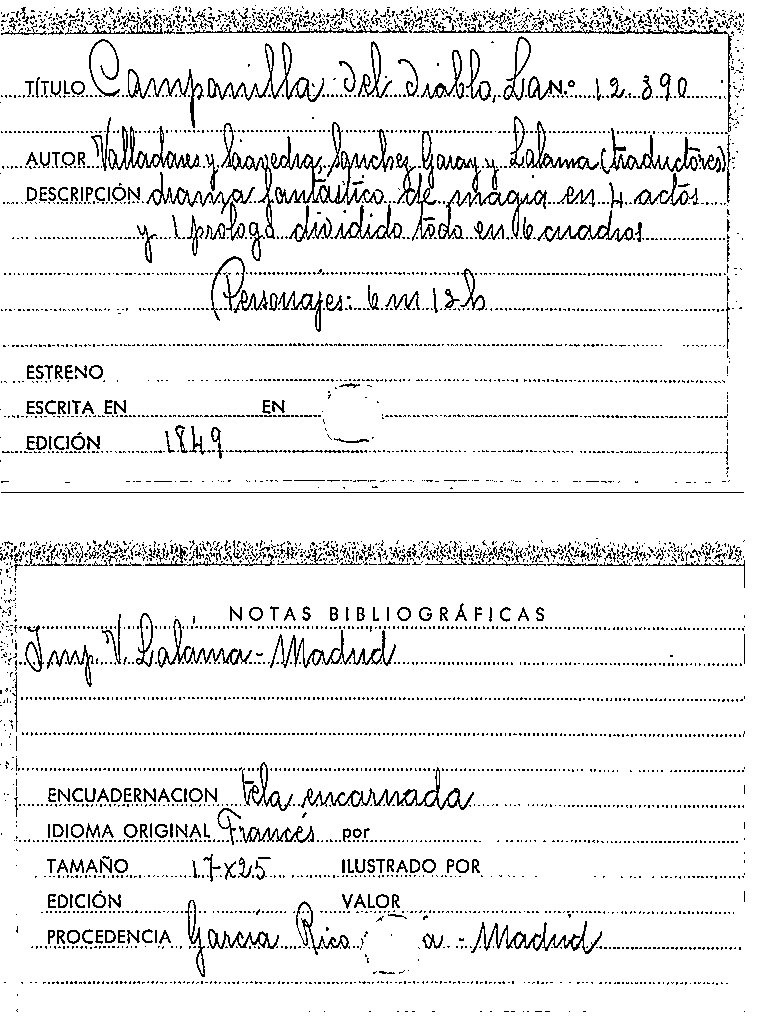 TÍTULO Campanilla del diablo, La N.º 12.890
AUTOR Valladares y Saavedra, Sanchez Garay y Lalama (traductores)
DESCRIPCIÓN drama fantástico de mágia en 4 actos
y 1 prólogo dividido todo en 6 cuadros
Personajes: 6 m 12 h
ESTRENO
ESCRITA EN EN
EDICIÓN 1849
NOTAS BIBLIOGRÁFICAS
Imp. V. Lalama - Madrid
ENCUADERNACION tela encarnada
IDIOMA ORIGINAL Francés por
TAMAÑO 17x25 ILUSTRADO POR
EDICIÓN VALOR
PROCEDENCIA García Rico a - Madrid